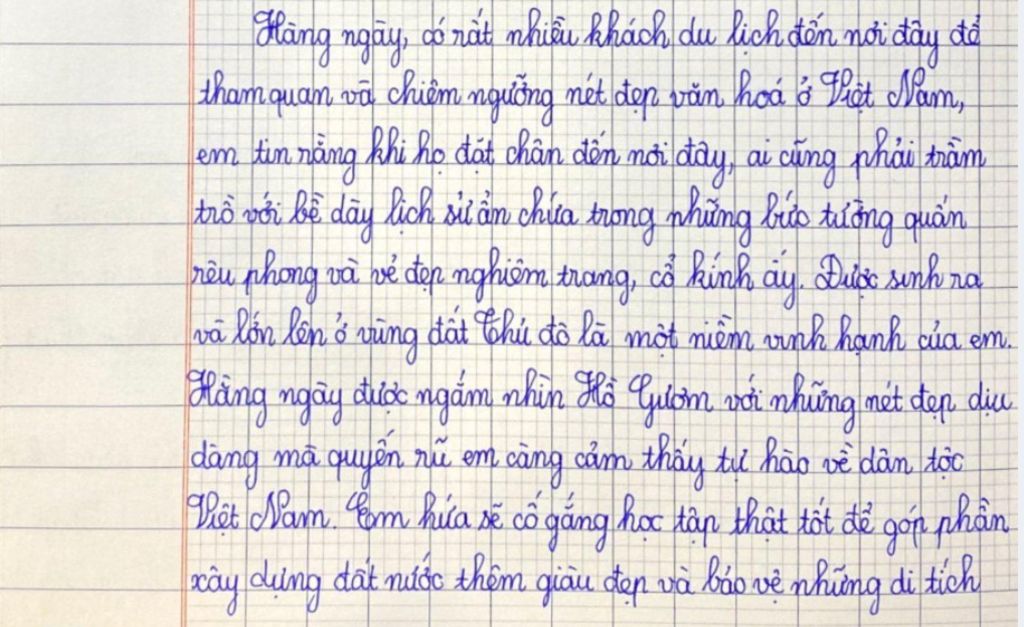 Hàng ngày, có rất nhiều khách du lịch đến nơi đây để
tham quan và chiêm ngưỡng nét đẹp văn hoá ở Việt Nam,
em tin rằng khi họ đặt chân đến nơi đây, ai cũng phải trầm
trồ với bề dày lịch sử ẩn chứa trong những bức tường quấn
rêu phong và vẻ đẹp nghiêm trang, cổ kính ấy. Được sinh ra
và lớn lên ở vùng đất Thủ đô là một niềm vinh hạnh của em.
Hằng ngày được ngắm nhìn Hồ Gươm với những nét đẹp dịu
dàng mà quyến rũ em càng cảm thấy tự hào về dân tộc
Việt Nam. Em hứa sẽ cố gắng học tập thật tốt để góp phần
xây dựng đất nước thêm giàu đẹp và bảo vệ những di tích